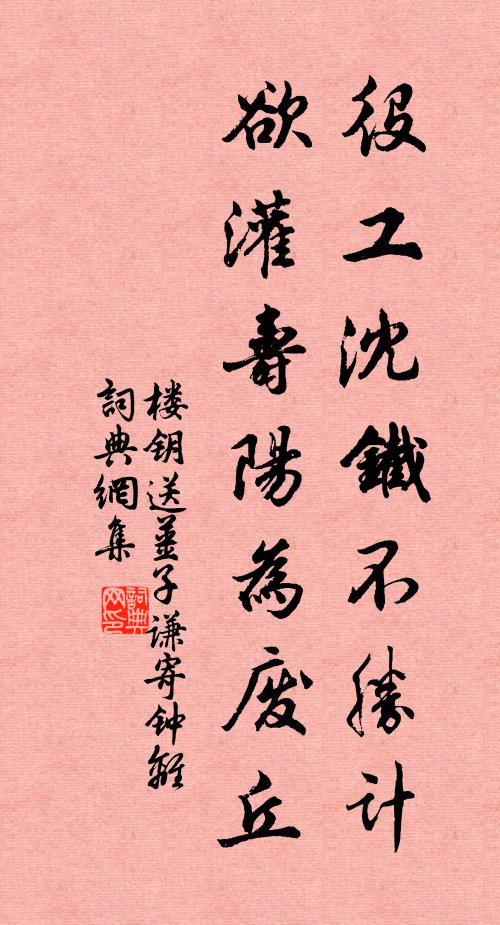 役工沈鐵不勝計
欲灌壽陽為廢丘
楼钥送姜子谦寄钟離
詞典網集
詞典网印